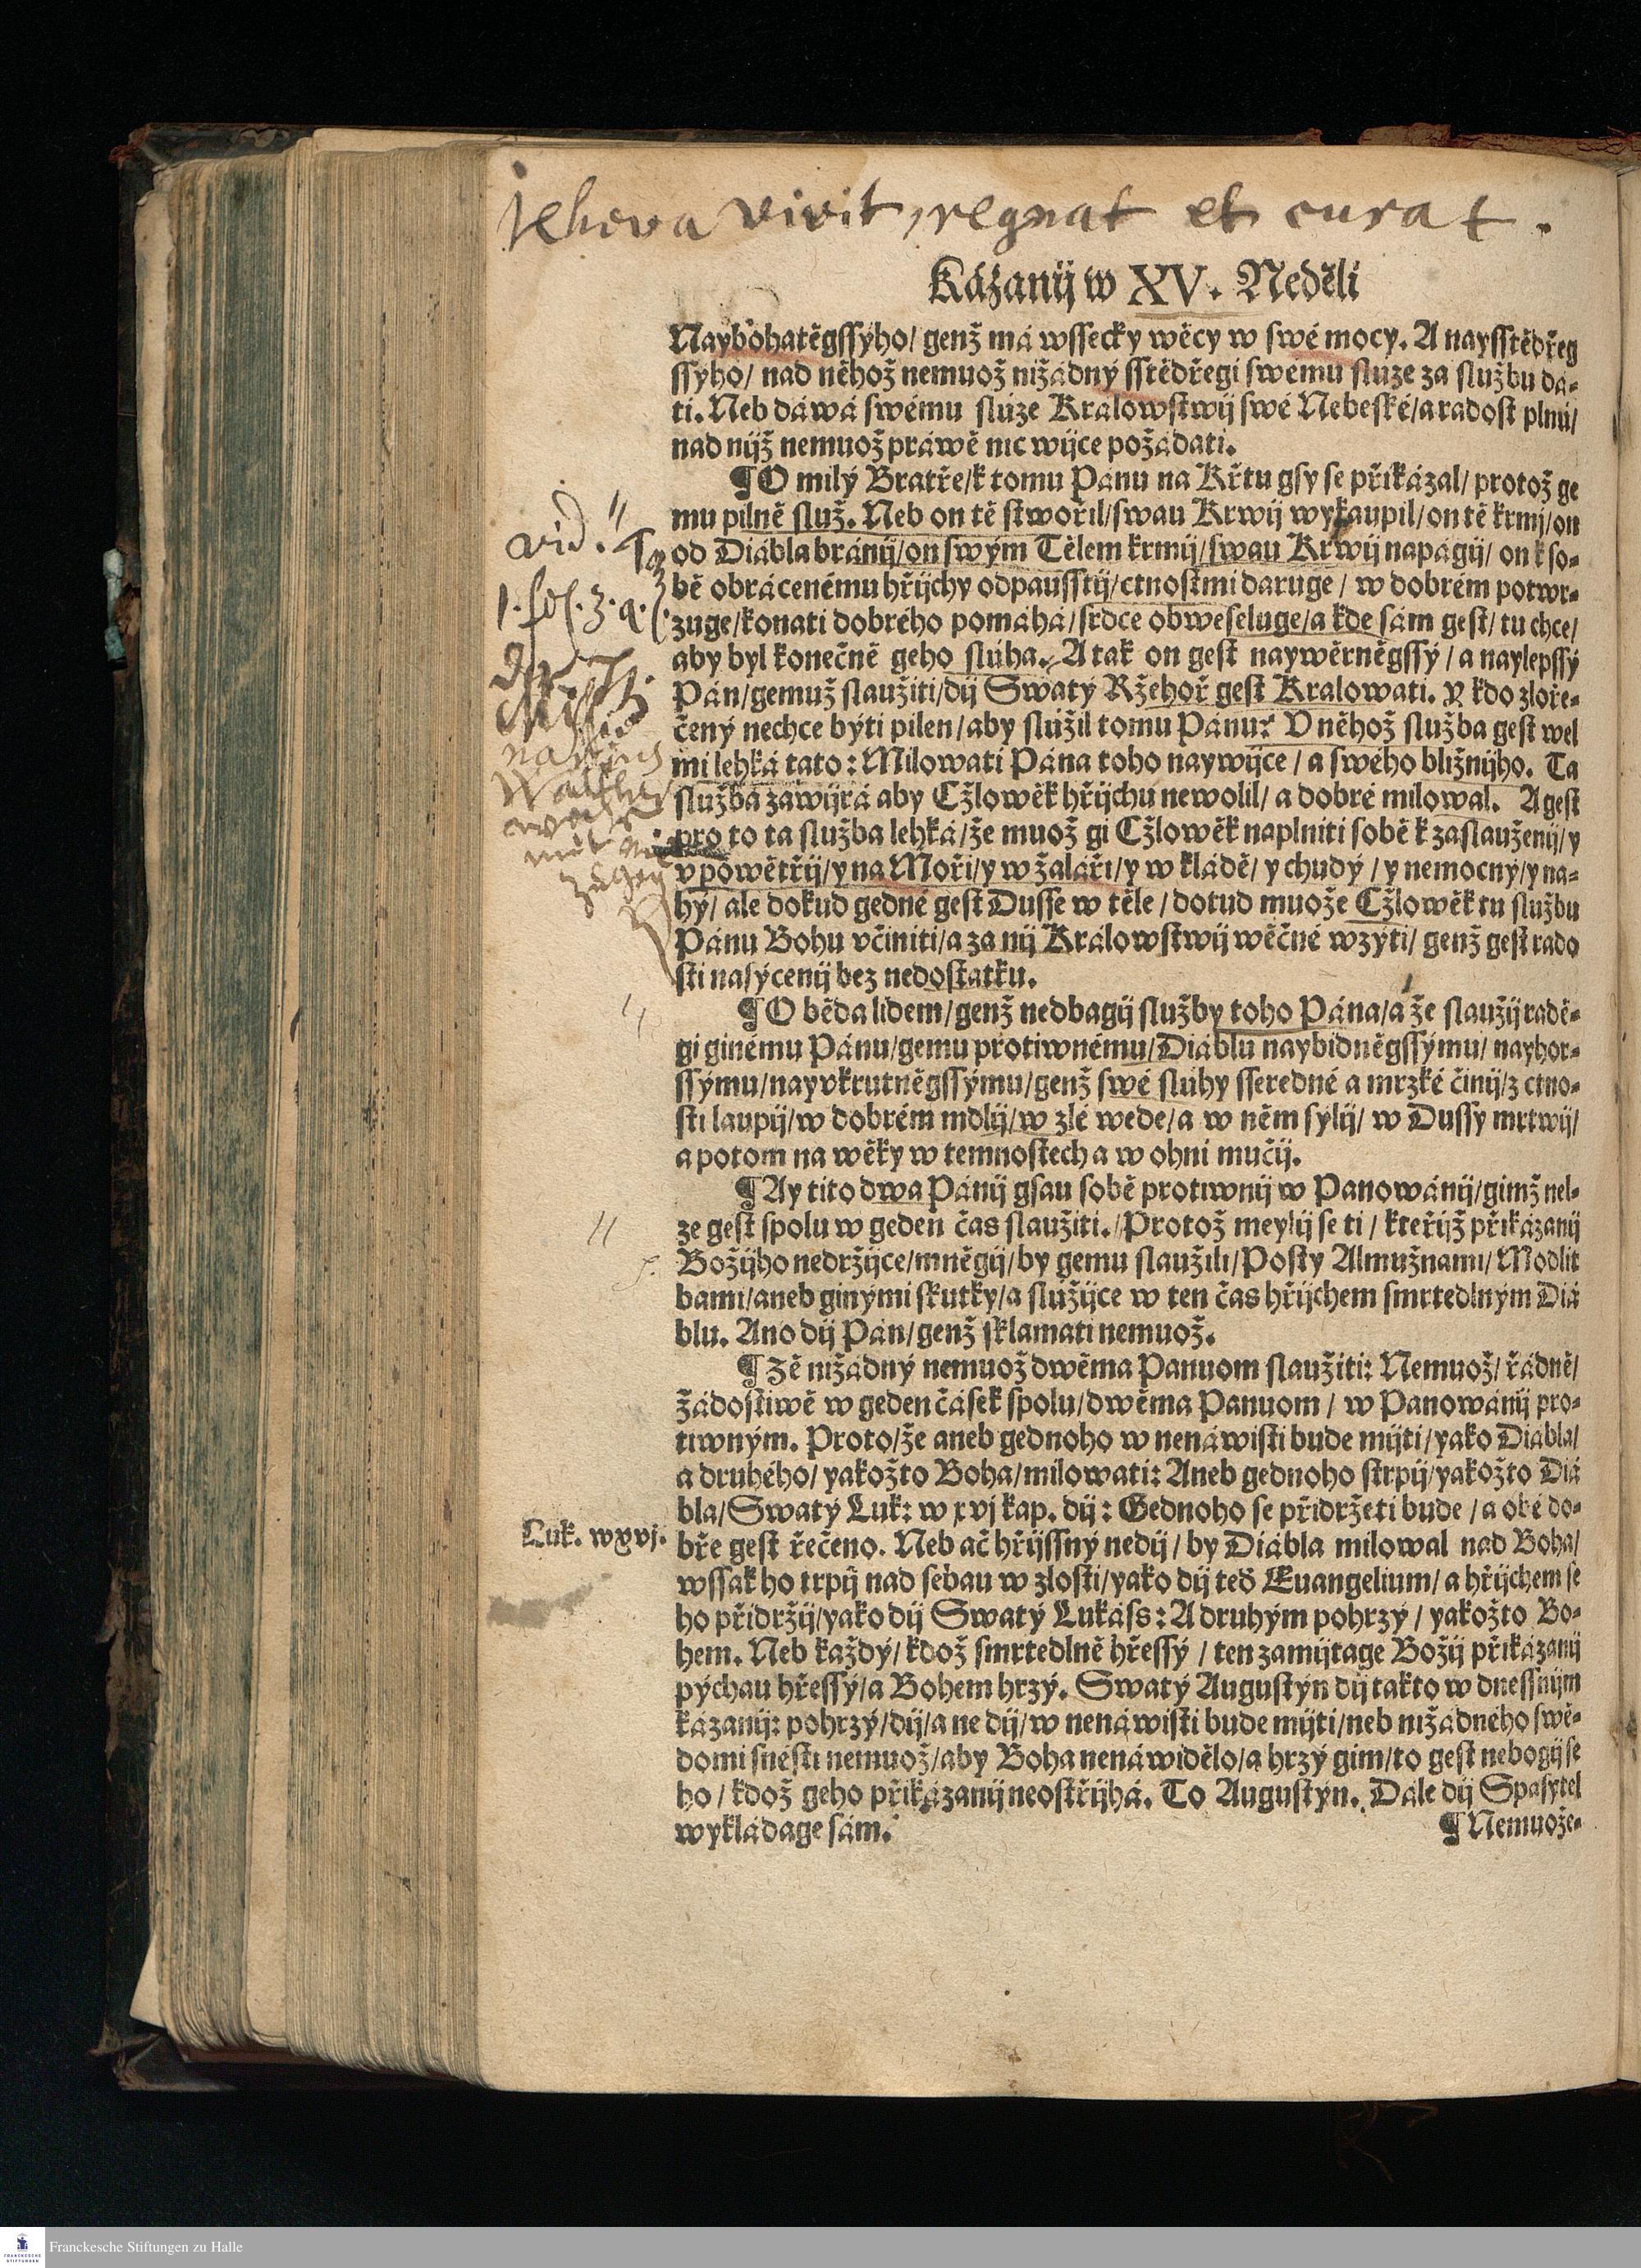 Jehova vivit, regnat et curat.
Kázanij w XV. Neděli
Naybohatěgssýho/ genž má wssecky wěcy w swé mocy. A naysstědřeg
ssýho/ nad něhož nemuož nižádný sstědřegi swému sluze za službu dá-
ti. Neb dáwá swému slúze Kralowstwij swé Nebeské/a radost plnú/
nad nijž nemuož práwě nic wijce požádati.
¶O milý Bratře/k tomu Pánu na Křtu gsy se přikázal/ protož ge
mu pilně služ. Neb on tě stwořil/swau Krwij wykaupil/on tě krmj/on
vid.
od Diábla bránij/on swým Tělem krmij/swau Krwij napágij/ on k so-
bě obrácenému hřijchy odpausstij/ctnostmi daruge/ w dobrém potwr-
zuge/konati dobrého pomáhá/srdce obweseluge/a kde sám gest/ tu chce/
aby byl konečně geho slúha. A tak on gest naywěrněgssý/ a naylepssý
Pán/gemuž slaužiti/dij Swatý Ržehoř gest Kralowati. Y kdo zloře-
čený nechce býti pilen/aby slúžil tomu Pánu? V něhož služba gest wel
mi lehká tato: Milowati Pána toho naywijce/ a swého bližnijho. Ta
Walther
službá zawijrá aby Cžlowěk hřijchu newolil/ a dobré milowal. A gest
pro to ta služba lehká/že muož gi Cžlowěk naplniti sobě k zaslauženij/y
v powětřij/y na Moři/y w žaláři/y w kládě/ y chudý/ y nemocný/y na-
hý/ ale dokud gedné gest Dusse w těle/ dotud muože Cžlowěk tu službu
Pánu Bohu včiniti/a za nij Králowstwij wěčné wzýti/ genž gest rado
sti nasýcenij bez nedostatku.
¶O běda lidem/genž nedbagij služby toho Pána/a že slaužij radě-
gi ginému Pánu/gemu protiwnému/Diáblu naybidněgssýmu/ nayhor-
ssýmu/nayvkrutněgssýmu/genž swé slúhy sseredné a mrzké činij/z ctno-
sti laupij/w dobrém mdlij/w zlé wede/a w něm sylij/ w Dussy mrtwij/
a potom na wěky w temnostech a w ohni mučij.
¶Ay tito dwa Pánij gsau sobě protiwnij w Panowánij/gimž nel-
ze gest spolu w geden čas slaužiti. Protož meylij se ti/ kteřijž přikázanij
Božijho nedržijce/mněgij/by gemu slaužili/Posty Almužnami/Modlit
bami/aneb ginými skutky/a slúžijce w ten čas hřijchem smrtedlným Diá
blu. Ano dij Pán/genž sklamati nemuož.
¶Zě nižádný nemuož dwěma Panuom slaužiti: Nemuož/ řádně/
žádostiwě w geden čásek spolu/dwěma Panuom/ w Panowánij pro-
tiwným. Proto/že aneb gednoho w nenáwisti bude mijti/yako Diábla/
a druhého/ yakožto Boha/milowati: Aneb gednoho strpij/yakožto Diá
bla/Swatý Luk: w xvj kap. dij: Gednoho se přidržeti bude/ a obé do-
Luk. wxvj.
bře gest řečeno. Neb ač hřijssný nedij/ by Diábla milowal nad Boha/
wssak ho trpij nad sebau w zlosti/yako dij teď Euangelium/ a hřijchem se
ho přidržij/yako dij Swatý Lukáss: A druhým pohrzý/ yakožto Bo-
hem. Neb každý/ kdož smrtedlně hřessý/ ten zamijtage Božij přikázanij
pýchau hřessý/a Bohem hrzý. Swatý Augustýn dij takto w dnessnijm
kázanij: pohrzý/dij/a ne dij/w nenáwisti bude mijti/neb nižádného swě-
domi snésti nemuož/aby Boha nenáwidělo/a hrzý gim/to gest nebogij se
ho/ kdož geho přikázanij neostřijhá. To Augustýn. Dále dij Spasytel
wykládage sám.
¶Nemuože-
Franckesche Stiftungen zu Halle